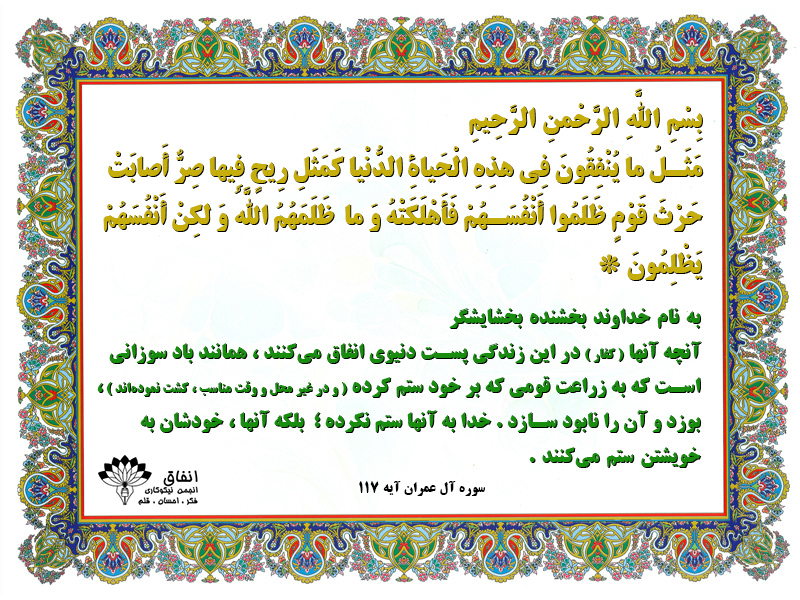 بِسْمِ اللَّهِ الرَّحْمنِ الرَّحِيمِ
مَثَــلُ ما يُنْفِقُونَ فِي هذِهِ الْحَياةِ الدُّنْيا كَمَثَلِ رِيحٍ فِيها صِرٌّ أَصابَتْ
حَرْثَ قَوْمٍ ظَلَمُوا أَنْفُسَــهُمْ فَأَهْلَكَتْهُ وَ ما ظَلَمَهُمُ اللَّهُ وَ لكِنْ أَنْفُسَهُمْ
يَظْلِمُونَ *
به نام خداوند بخشنده بخشایشگر
آنچه آنها ( کفار ) در این زندگی پســت دنیوی انفاق می‌کنند ، همانند باد سوزانی
اســت که به زراعت قومی که بر خود ستم کرده ( و در غیر محل و وقت مناسب ، کشت نموده‌اند ) ،
بوزد و آن را نابود ســازد . خدا به آنها ستم نکرده ؛ بلکه آنها ، خودشان به
خویشتن ستم می‌کنند .
سوره آل عمران آیه ۱۱۷
انفاق
انجمن نیکوکاری
فکر ، احسان ، قلم